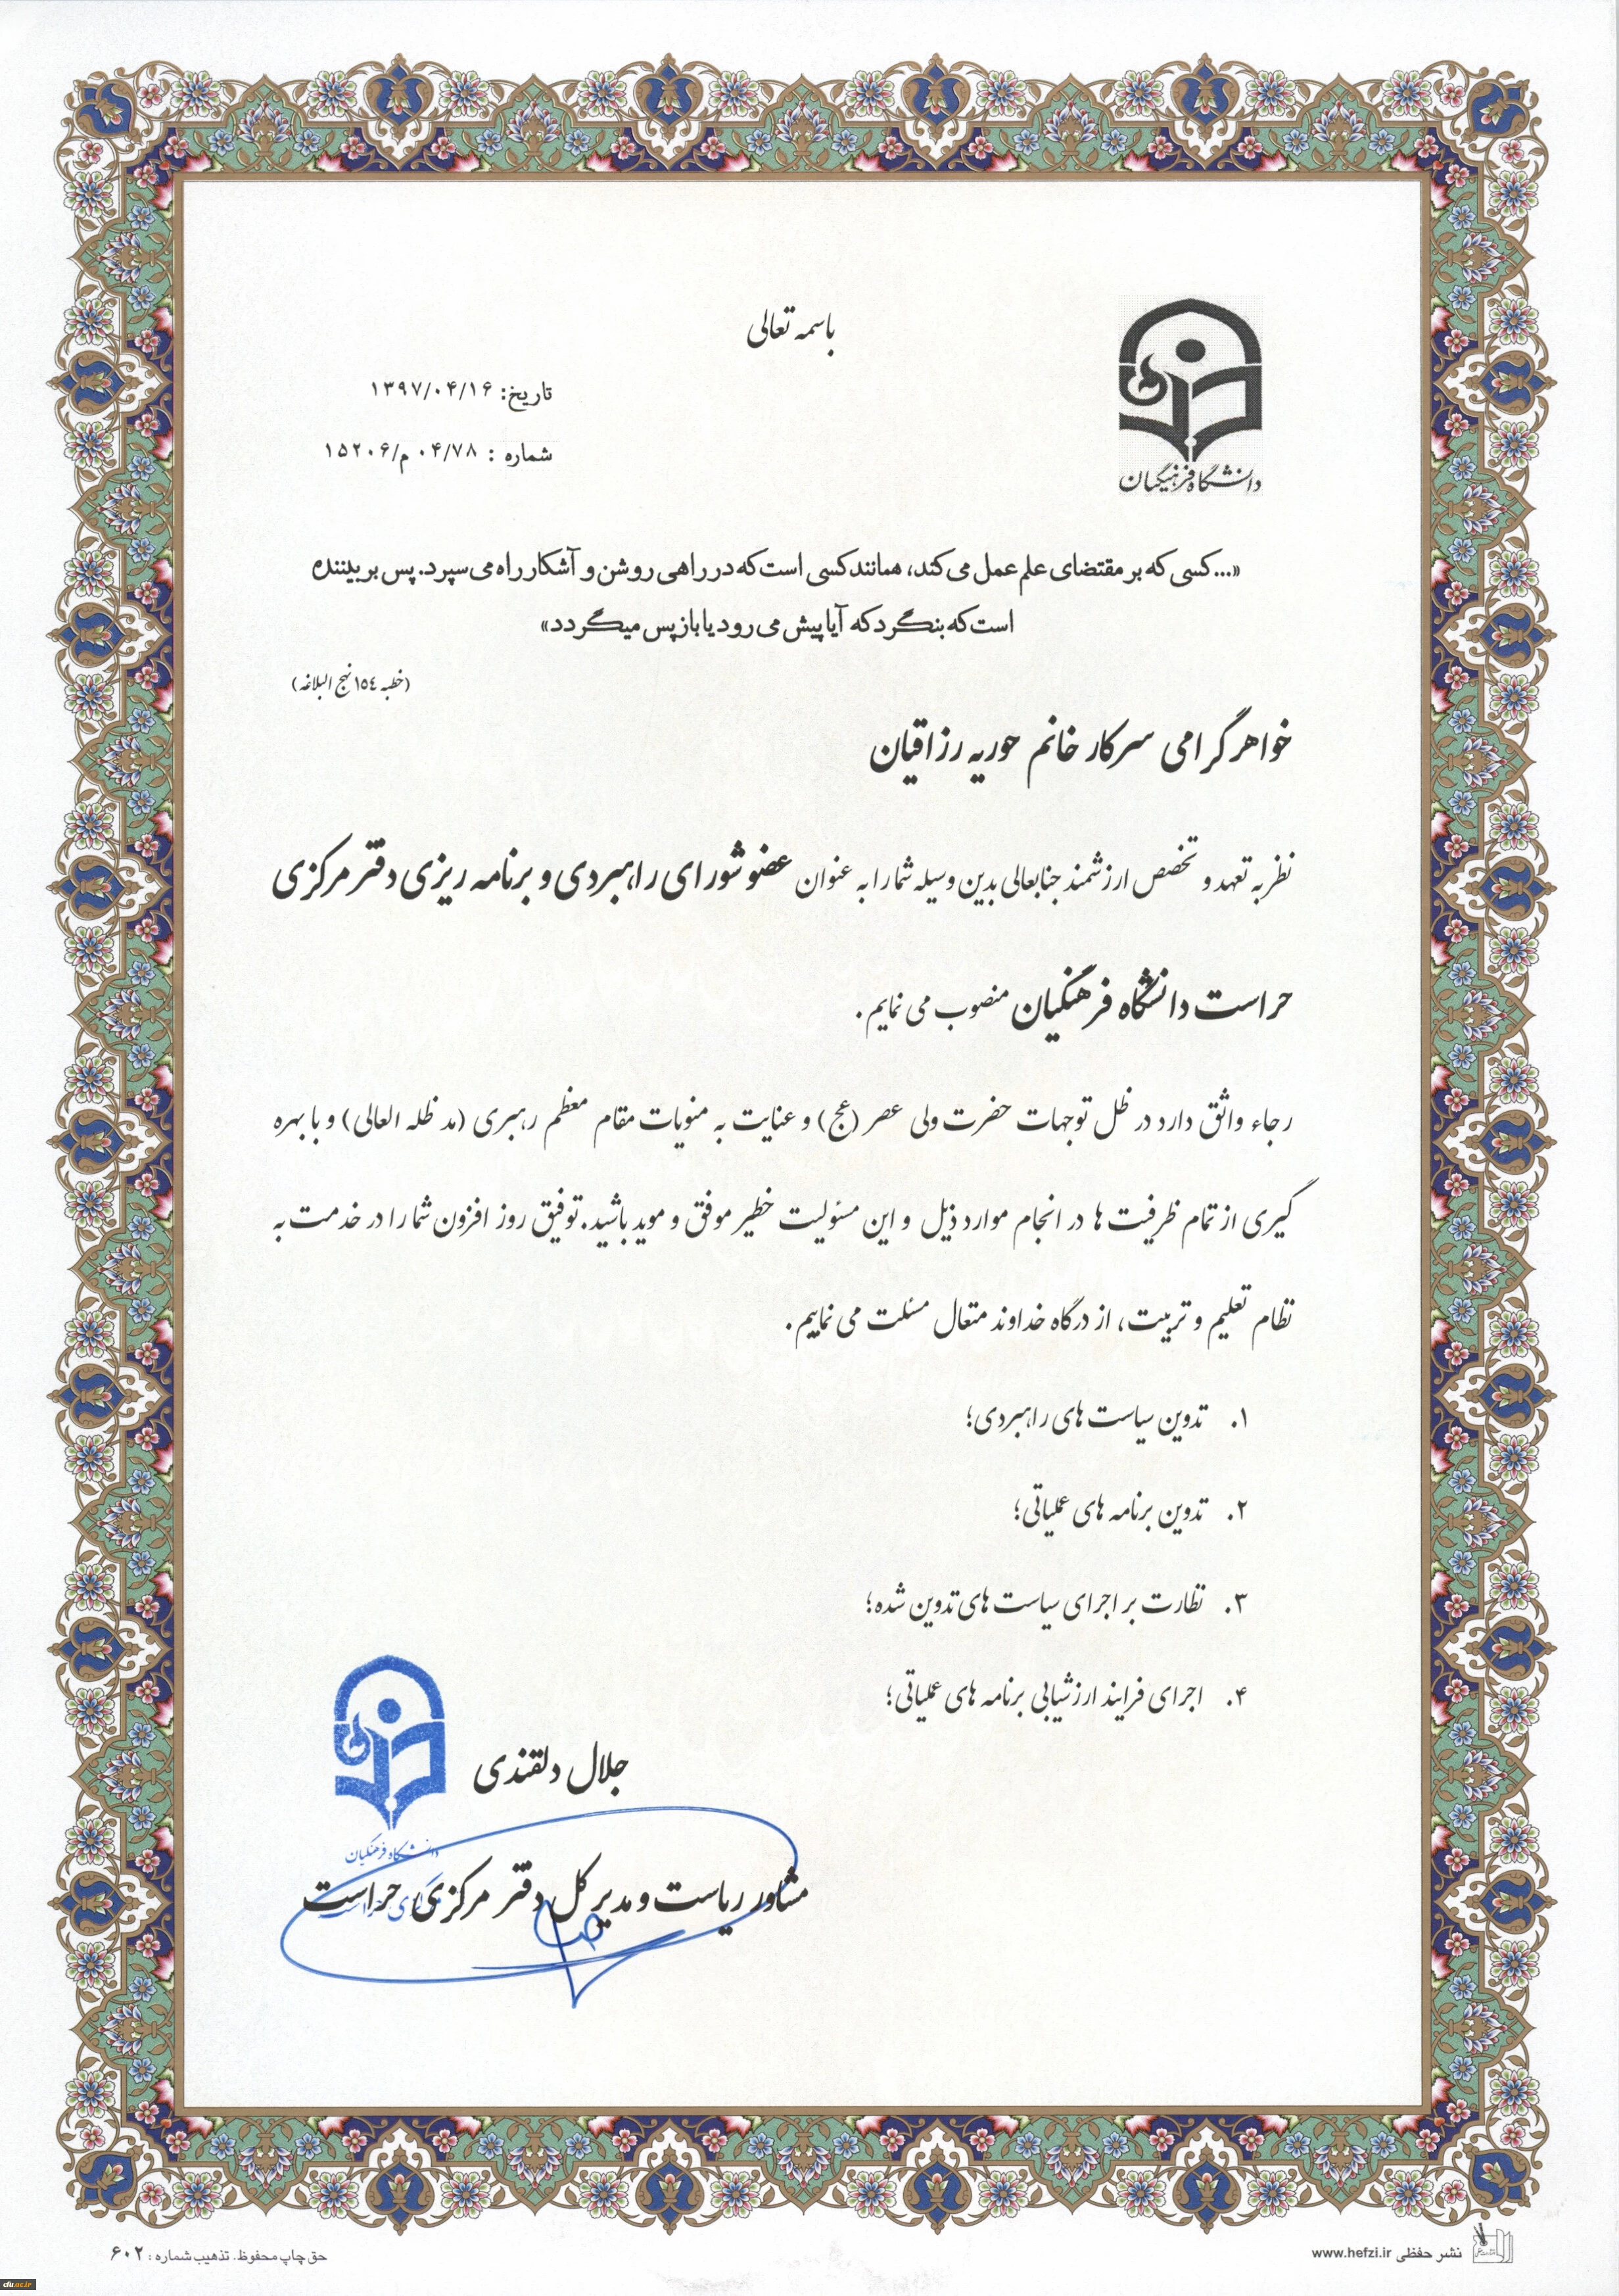 باسمه تعالی
تاریخ: ۱۳۹۷/۰۴/۱۶
شماره : ۰۴/۷۸م/۱۵۲۰۶
دانشگاه فرهنگیان
«...کسی که بر مقتضای علم عمل می کند، همانند کسی است که در راهی روشن و آشکار راه می سپرد. پس بر بیننده
است که بنگرد که آیا پیش می رود یا باز پس میگردد»
(خطبه ١٥٤ نهج البلاغه)
خواهر گرامی سرکار خانم حوریه رزاقیان
نظر به تعهد و تخصص ارزشمند جنابعالی بدین وسیله شما را به عنوان عضو شورای راهبردی و برنامه ریزی دفتر مرکزی
حراست دانشگاه فرهنگیان منصوب می نمایم.
رجاء واثق دارد در ظل توجهات حضرت ولی عصر (عج) و عنایت به منویات مقام معظم رهبری (مد ظله العالی) و با بهره
گیری از تمام ظرفیت ها در انجام موارد ذیل و این مسئولیت خطیر موفق و موید باشید. توفیق روز افزون شما را در خدمت به
نظام تعلیم و تربیت، از درگاه خداوند متعال مسئلت می نماییم.
۱. تدوین سیاست های راهبردی؛
۲. تدوین برنامه های عملیاتی؛
۳. نظارت بر اجرای سیاست های تدوین شده؛
۴. اجرای فرایند ارزشیابی برنامه های عملیاتی؛
جلال دلقندی
دانشگاه فرهنگیان
مشاور ریاست و مدیر کل دفتر مرکزی حراست
نشر حفظی www.hefzi.ir
حق چاپ محفوظ. تذهیب شماره : ۶۰۲
cfu.ac.ir